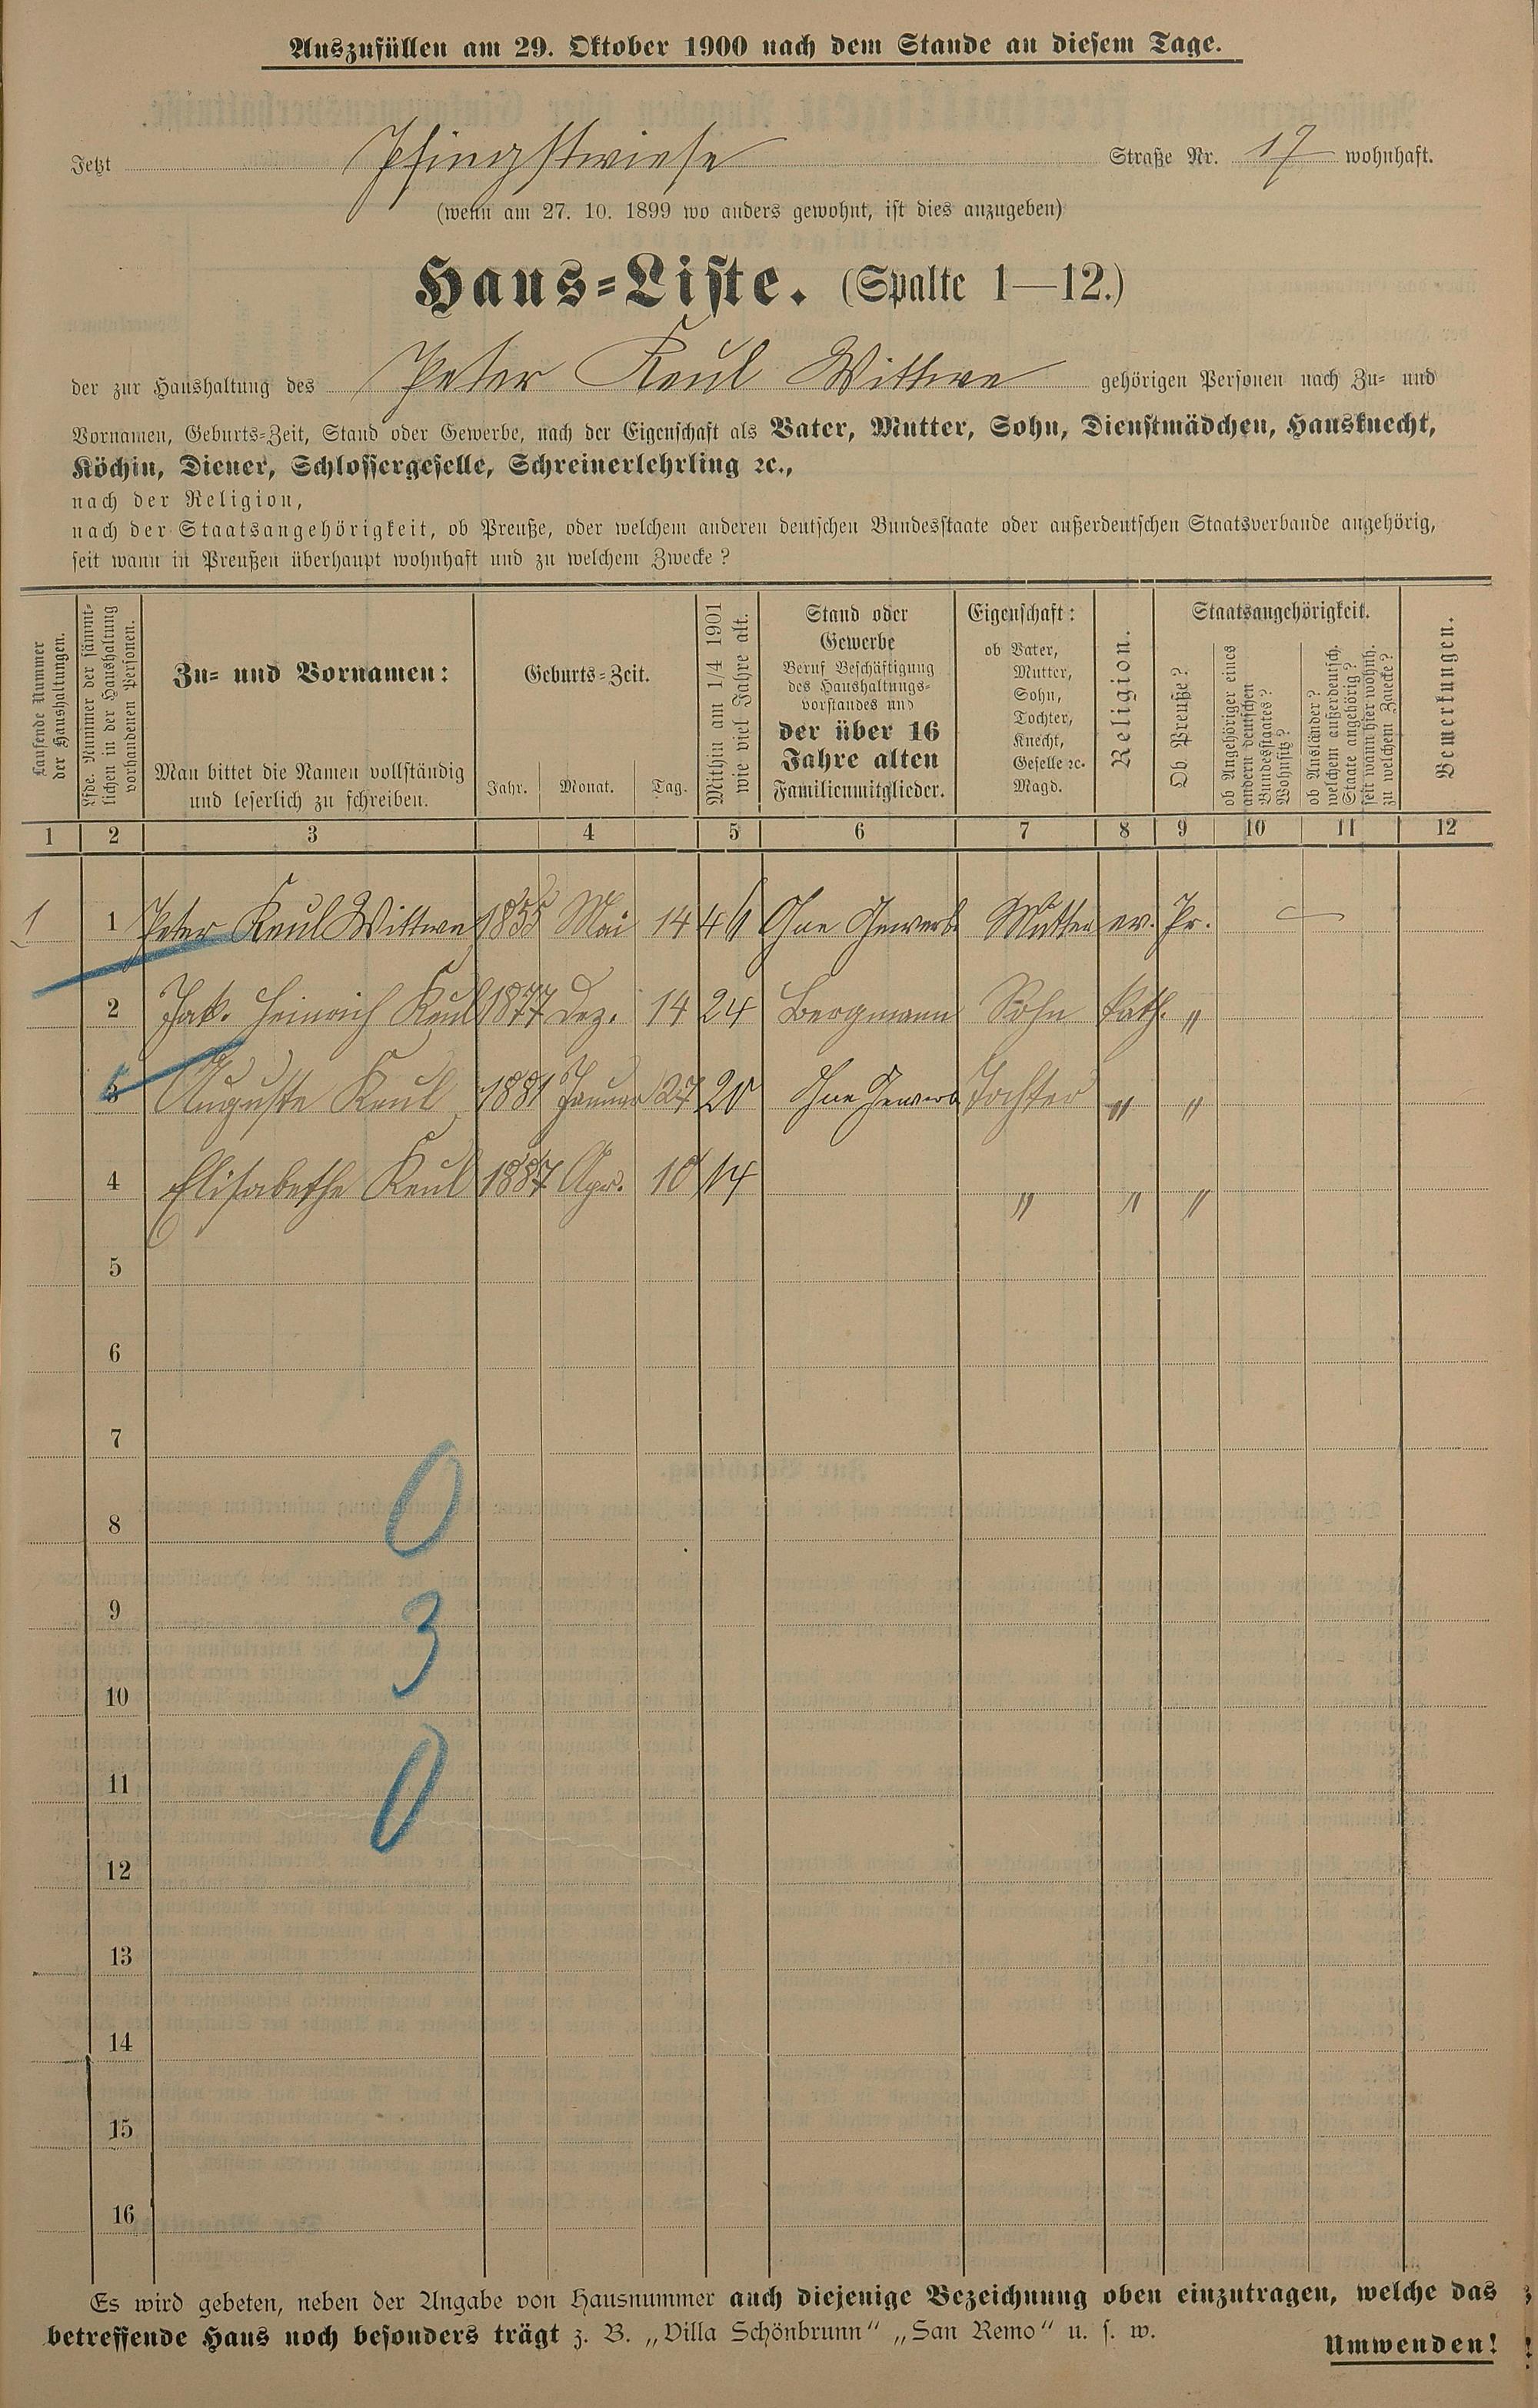 Auszufüllen am 29. Oktober 1900 nach dem Stande an diesem Tage.
Jetzt Pfingstwiese Straße Nr. 17 wohnhaft.
(wenn am 27. 10. 1899 wo anders gewohnt, ist dies anzugeben)
Haus=Liste. (Spalte 1—12.)
der zur Haushaltung des Peter Keul Wittwe gehörigen Personen nach Zu= und
Vornamen, Geburts=Zeit, Stand oder Gewerbe, nach der Eigenschaft als Vater, Mutter, Sohn, Dienstmädchen, Hausknecht,
Köchin, Diener, Schlossergeselle, Schreinerlehrling ꝛc.,
nach der Religion,
nach der Staatsangehörigkeit, ob Preuße, oder welchem anderen deutschen Bundesstaate oder außerdeutschen Staatsverbande angehörig,
seit wann in Preußen überhaupt wohnhaft und zu welchem Zwecke?
Laufende Nummer
der Haushaltungen.
Lfde. Nummer der sämmt=
lichen in der Haushaltung
vorhandenen Personen.
Zu= und Vornamen:
Man bittet die Namen vollständig
und leserlich zu schreiben.
Geburts=Zeit.
Jahr. Monat. Tag.
Mithin am 1/4 1901
wie viel Jahre alt.
Stand oder
Gewerbe
Beruf Beschäftigung
des Haushaltungs=
vorstandes und
der über 16
Jahre alten
Familienmitglieder.
Eigenschaft:
ob Vater,
Mutter,
Sohn,
Tochter,
Knecht,
Geselle ꝛc.
Magd.
Religion.
Staatsangehörigkeit.
Ob Preuße?
ob Angehöriger eines
andern deutschen
Bundesstaates?
Wohnsitz?
ob Ausländer?
welchem außerdeutsch.
Staate angehörig?
seit wann hier wohnh.
zu welchem Zwecke?
Bemerkungen.
1 2 3 4 5 6 7 8 9 10 11 12
1 1 Peter Keul Wittwe 1855 Mai 14 Ohne Gewerb Mutter ev. Pr.
2 Jak. Heinrich Keul 1877 Dez. 14 24 Bergmann Sohn kath. "
3 Auguste Keul 1881 Januar 27 20 Ohne Gewerb Tochter " "
4 Elisabethe Keul 1887 Apr. 10 14 " " "
5
6
7
8
0
9
3
10
11
0
12
13
14
15
16
Es wird gebeten, neben der Angabe von Hausnummer auch diejenige Bezeichnung oben einzutragen, welche das
betreffende Haus noch besonders trägt z. B. „Villa Schönbrunn“ „San Remo“ u. s. w.
Umwenden!